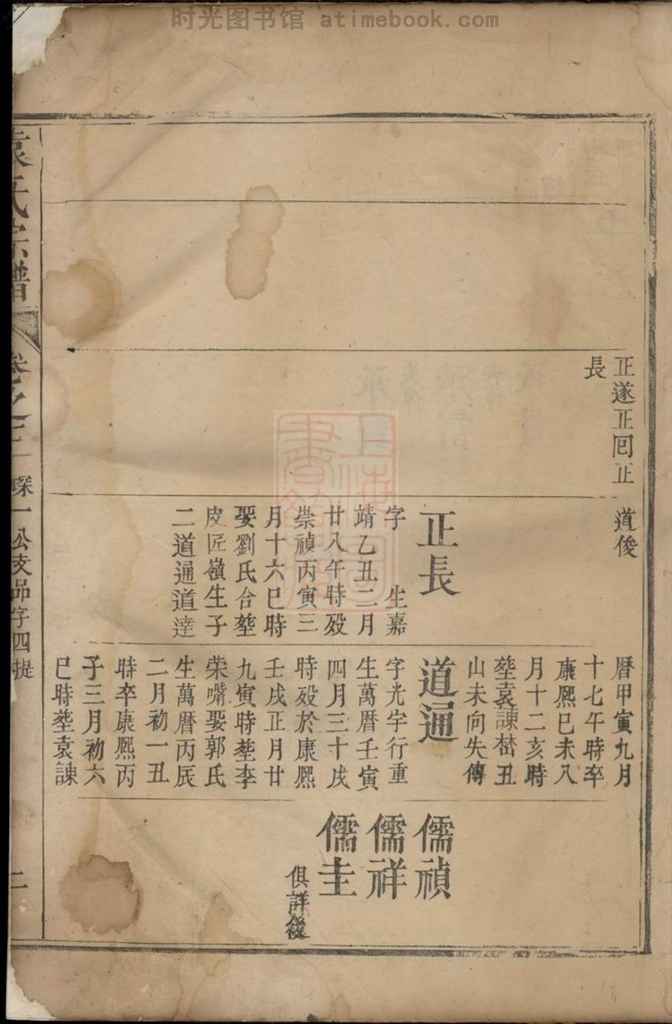 时光图书馆 atimebook.com
正遂正囘正
長
道俊
正長
字　生嘉
靖乙丑二月
廿八午時殁
崇禎丙寅三
月十六巳時
娶劉氏合塟
皮匠嶺生子
二道通道達
曆甲寅九月
十七午時卒
康熙巳未八
月十二亥時
塟袁諫㟧丑
山未向失傳
道通
字光宇行重
生萬曆壬寅
四月三十戌
時殁於康熙
壬戌正月廿
九寅時塟李
柴嘴娶郭氏
生萬曆丙辰
二月初一丑
時卒康熙丙
子三月初六
巳時塟袁諫
儒禎
儒祥
儒圭
俱詳後
袁氏宗譜
卷之三
琛一公支昂字四提
二